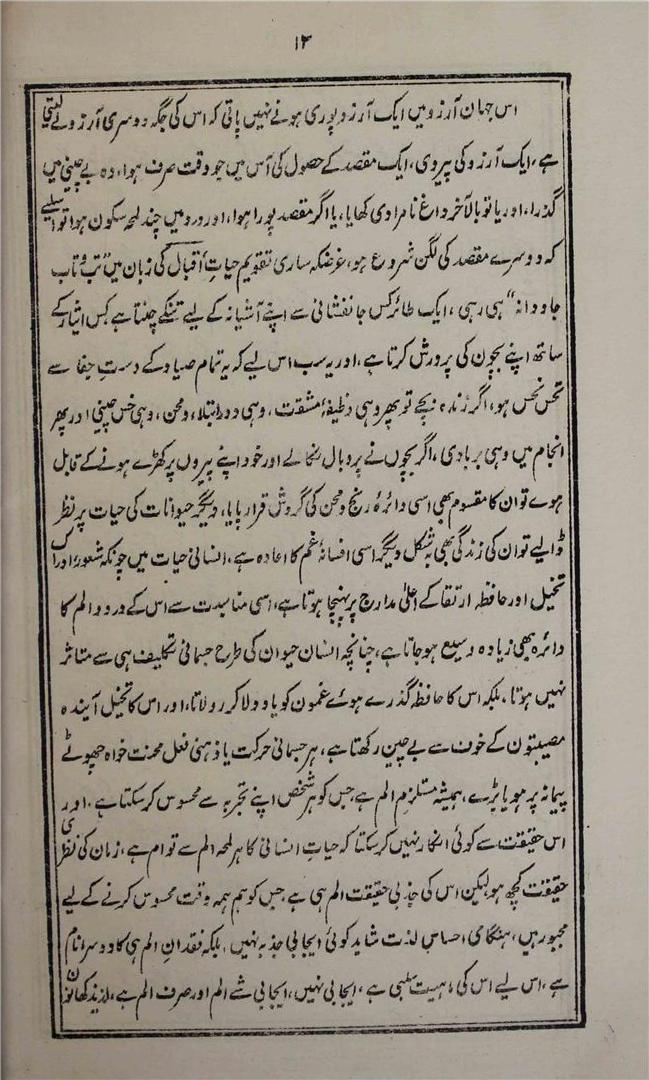 ۱۳
اس جہان آرزو میں ایک آرزو پوری ہونے نہیں پاتی کہ اس کی جگہ دوسری آرزو لے لیتی
ہے، ایک آرزو کی پیروی، ایک مقصد کے حصول کی آس میں جو وقت صرف ہوا، وہ بے چینی میں
گذرا، اور یا تو بالآخر داغ نامرادی کھایا، یا اگر مقصد پورا ہوا، اور ورد میں چند لمحہ سکون ہوا تو اسلیے
کہ دوسرے مقصد کی لگن شروع ہو، غرضکہ ساری تقویم حیات اقبال کی زبان میں "تب و تاب
جاودانہ" ہی رہی، ایک طائر کس جانفشانی سے اپنے آشیانہ کے لیے تنکے چنتا ہے کس ایثار کے
ساتھ اپنے بچون کی پرورش کرتا ہے، اور یہ سب اس لیے کہ یہ تمام صیاد کے دست جفا سے
تحس نحس ہو، اگر زندہ بچے تو پھر وہی وظیفۂ مشقت، وہی دور ابتلاء و محن، وہی خس چینی اور پھر
انجام میں وہی بربادی، اگر بچوں نے پر و بال نکالے اور خود اپنے پیروں پر کھڑے ہونے کے قابل
ہوے تو ان کا مقسوم بھی اسی دائرہ رنج و محن کی گردش قرار پایا، دیگر حیوانات کی حیات پر نظر
ڈالیے تو ان کی زندگی بھی بشکل دیگر اسی افسانۂ غم کا اعادہ ہے، انسانی حیات میں چونکہ شعور، ادراک
تخیل اور حافظہ ارتقا کے اعلیٰ مدارج پر پہنچا ہوتا ہے، اسی مناسبت سے اس کے درد و الم کا
دائرہ بھی زیادہ وسیع ہو جاتا ہے، چنانچہ انسان حیوان کی طرح جسمانی تکلیف ہی سے متاثر
نہیں ہوتا، بلکہ اس کا حافظہ گذرے ہوئے غمون کو یاد دلا کر رولاتا، اور اس کا تخیل آیندہ
مصیبتون کے خوف سے بے چین رکھتا ہے، ہر جسمانی حرکت یا ذہنی فعل محنت خواہ چھوٹے
پیمانہ پر ہو یا بڑے، ہمیشہ مستلزم الم ہے جس کو ہر شخص اپنے تجربہ سے محسوس کر سکتا ہے، اور
اس حقیقت سے کوئی انکار نہیں کر سکتا کہ حیات انسانی کا ہر لمحہ الم سے توام ہے، زمان کی نظری
حقیقت کچھ ہو لیکن اس کی جذبی حقیقت الم ہی ہے جس کو ہم ہمہ وقت محسوس کرنے کے لیے
مجبور ہیں، ہنگامی احساس لذت شاید کوئی ایجابی جذبہ نہیں، بلکہ فقدان الم ہی کا دوسرا نام
ہے، اس لیے اس کی ماہیت سلبی ہے، ایجابی نہیں، ایجابی شے الم اور صرف الم ہے، لذیذ کھانوں